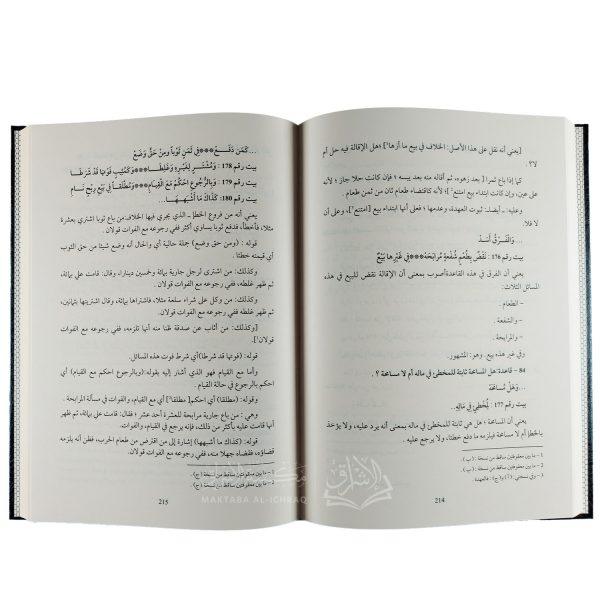 [يعني أنه نقل على هذا الأصل: الخلاف في بيع ما أزها¹] ؛هل الإقالة فيه حل أم
لا؟.
كما إذا باع ثمرا [ بعد زهوه، ثم أقاله منه بعد يبسه ؟ فإن كانت حلا جاز ؛ لأنه
على عين، وإن كانت ابتداء بيع امتنع²]؛ لأنه كاقتضاء طعام ثان من ثمن طعام.
وعليه: ـ أيضا: ثبوت العهدة، وعدمها ؛ فعلى أنها ابتداء بيع [امتنع³]، وعلى أن
لا فلا.
...وَالفَرْقُ أَسَدُّ
بيت رقم 176 : نَقْضٌ بِطُعْمِ شُفْعَةٍ مُرَابَحَهْ***فِي غَيْرِهَا بَيْعٌ
يعني أن الفرق في هذه القاعدةأصوب بمعنى أن الإقالة نقض للبيع في هذه
المسائل الثلاث:
- الطعام.
- والشفعة.
- والمرابحة.
وفي غير هذه بيع. وهو: المشهور.
84 – قاعدة: هل المسامحة ثابتة للمخطئ في ماله أم لا مسامحة ؟ .
...وَهَلْ مُسَامَحَهْ
بيت رقم 177 : لِمُخْطِئٍ فِي مَالِهِ.
يعني أن المسامحة: هل هي ثابتة للمخطئ في ماله بمعنى أنه يرد عليه، ولا يؤاخذ
بالخطإ أم لا مسامحة فيلزمه ما دفع خطئا، ولا يرجع عليه .
1 – ما بين معقوفتين ساقط من نسخة: ( ب )
2 – ما بين معقوفتين ساقط من نسخة: ( ب )
3 – وفي نسختي: (أ) و(ج): فالعهدة
214
...كَمَنْ دَفَـــعْ***فِي ثَمَنٍ ثَوْباً وَمِنْ حَقٍّ وَضَعْ
بيت رقم 178 : وَمُشْتَــرٍ لِغَيْــرِهِ وَغَلِطَــا***وَكَمُثِيبٍ فَوْتِهَا قَدْ شَرَطَا
بيت رقم 179 : وَبِالرُّجُوعِ احْكُمْ مَعَ القِيَامِ***وَمُطْلَقاً فِي بَيْعِ رِبْحٍ نَــامِ
بيت رقم 180 : كَذَاكَ مَا أَشْبَهَهَــا...
يعني أنه من فروع الخطإ ـ الذي يجري فيها الخلاف ـ من باع ثوبا اشتري بعشرة
مثلا، فأخطأ، فدفع ثوبا يساوي أكثر ففي رجوعه مع الفوات قولان.
قوله: (ومن حق وضع) جملة حالية أي والحال أنه وضع شيئا من حق الثوب
أي قيمته خطئا.
وكذلك: من اشترى لرجل جارية بمائة وخمسين دينارا، ثم قال: قامت علي بمائة،
ثم ظهر غلطه، ففي رجوعه مع الفوات قولان.
وكذلك: من وكل على شراء سلعة مثلا، فاشتراها بمائة، وقال اشتريتها بثمانين،
ثم ظهر غلطه، ففي رجوعه مع الفوات قولان.
[وكذلك: من أثاب عن صدقة ظنا منه أنها تلزمه، ففي رجوعه مع الفوات
قولان¹].
قوله: (فوتها قد شرطا) أي شرط فوت هذه المسائل.
وأما مع القيام فهو الذي أشار إليه بقوله:(وبالرجوع احكم مع القيام) أي
احكم بالرجوع في حالة القيام .
وقوله: (مطلقا) أي احكم[ مطلقا²] أي مع القيام، والفوات في مسألة المرابحة .
وهي: من باع جارية مرابحة للعشرة أحد عشر ؛ فقال: قامت علي بمائة، ثم ظهر
أنها قامت عليه بأكثر من ذلك، فإنه يرجع في القيام، والفوات.
وقوله: (كذاك ما أشبهها) إشارة إلى من اقترض من طعام الحرب، فظن أنه يلزمه
قضاؤه، فقضاه جهلا منه، ففي رجوعه مع الفوات قولان.
1 – ما بين معقوفتين ساقط من نسخة (ج)
2 – ما بين معقوفتين ساقط من نسخة (ج)
215
MAKTABA AL-ICHRAQ